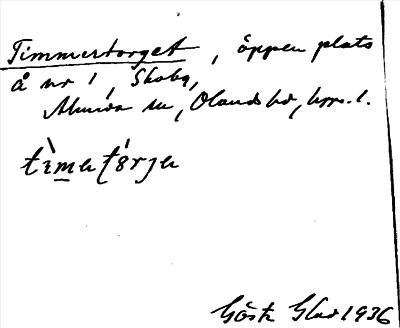 Timmertorget, öppen plats
å nr 1, Skoby,
Alunda sn, Olands hd, Upps. l.
tìmertórjer
Gösta Glad 1936